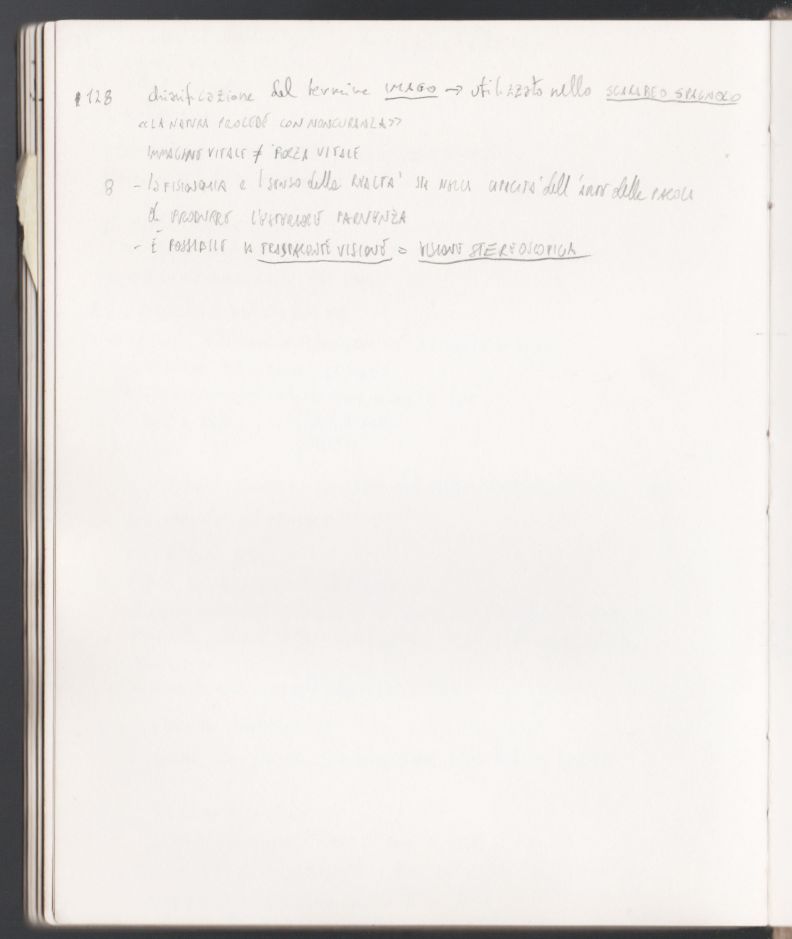 128 chiarificazione del termine IMAGO → utilizzato nello SCARABEO SPAGNOLO
«LA NATURA PROCEDE CON NONCURANZA»
IMMAGINE VITALE ≠ FORZA VITALE
8 - la FISIONOMIA e l senso della REALTA' STA NELLA CAPACITA' dell' della PAROLA
di PRODURRE L'ULTERIORE PARVENZA
- È POSSIBILE la TRASPARENTE VISIONE = VISIONE STEREOSCOPICA